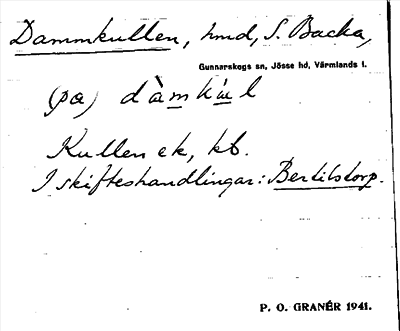 Dammkullen, hmd, S. Backa,
Gunnarskogs sn, Jösse hd, Värmlands l.
(pa) dàmkùl
Kullen ek, kb.
I skifteshandlingar: Bertilstorp.
P. O. GRANÉR 1941.